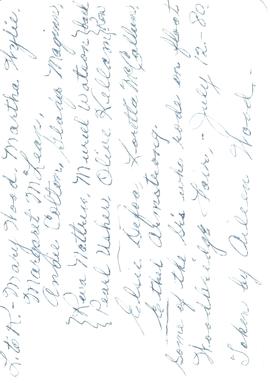 L to R:- Mary Hood Martha Wylie.
Margaret McLean,
Andie Colton, Gladys Maginn,
{Reva Natthur, Muriel Watson Back
{Pearl Ushere Olive Kellam Row
Elsie Defoe, McCallum,
Ethel Armstrong.
some of the who rode on float
Woodbridge Fair, July 12-80.
Taken by Aileen Wood.